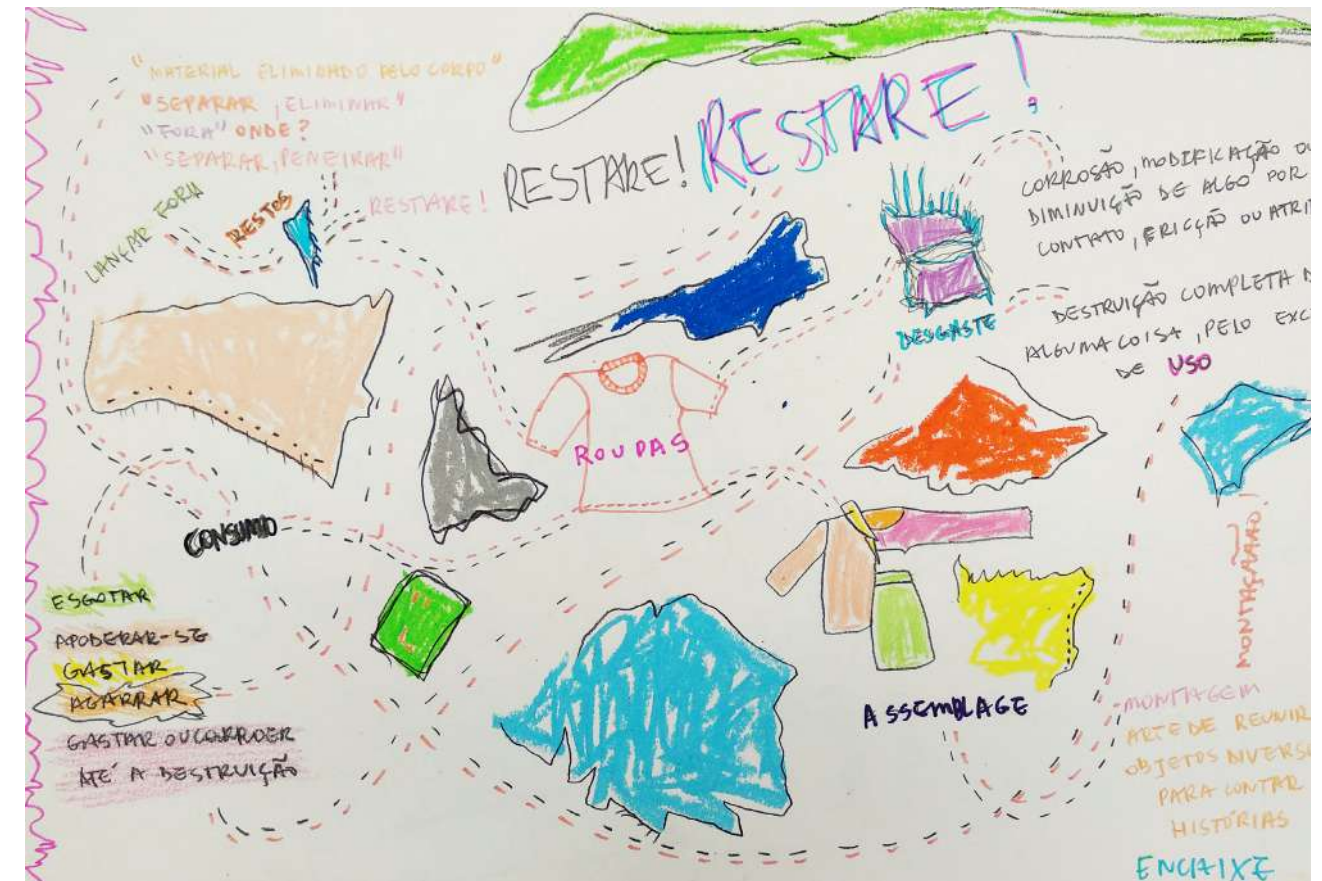 "MATERIAL ELIMINADO PELO CORPO"
"SEPARAR, ELIMINAR"
"FORA" ONDE?
"SEPARAR, PENEIRAR"
LANÇAR FORA
RESTOS
RESTARE!
RESTARE!
RESTARE!
CORROSÃO, MODIFICAÇÃO OU
DIMINUIÇÃO DE ALGO POR
CONTATO, FRICÇÃO OU ATRI
DESGASTE
DESTRUIÇÃO COMPLETA D
ALGUMA COISA, PELO EXC
DE USO
ROUPAS
CONSUMO
ESGOTAR
APODERAR-SE
GASTAR
AGARRAR
GASTAR OU CORROER
ATÉ A DESTRUIÇÃO
ASSEMBLAGE
MONTAÇÃAAO!
MONTAGEM
ARTE DE REUNIR
OBJETOS DIVERSO
PARA CONTAR
HISTÓRIAS
ENCAIXE